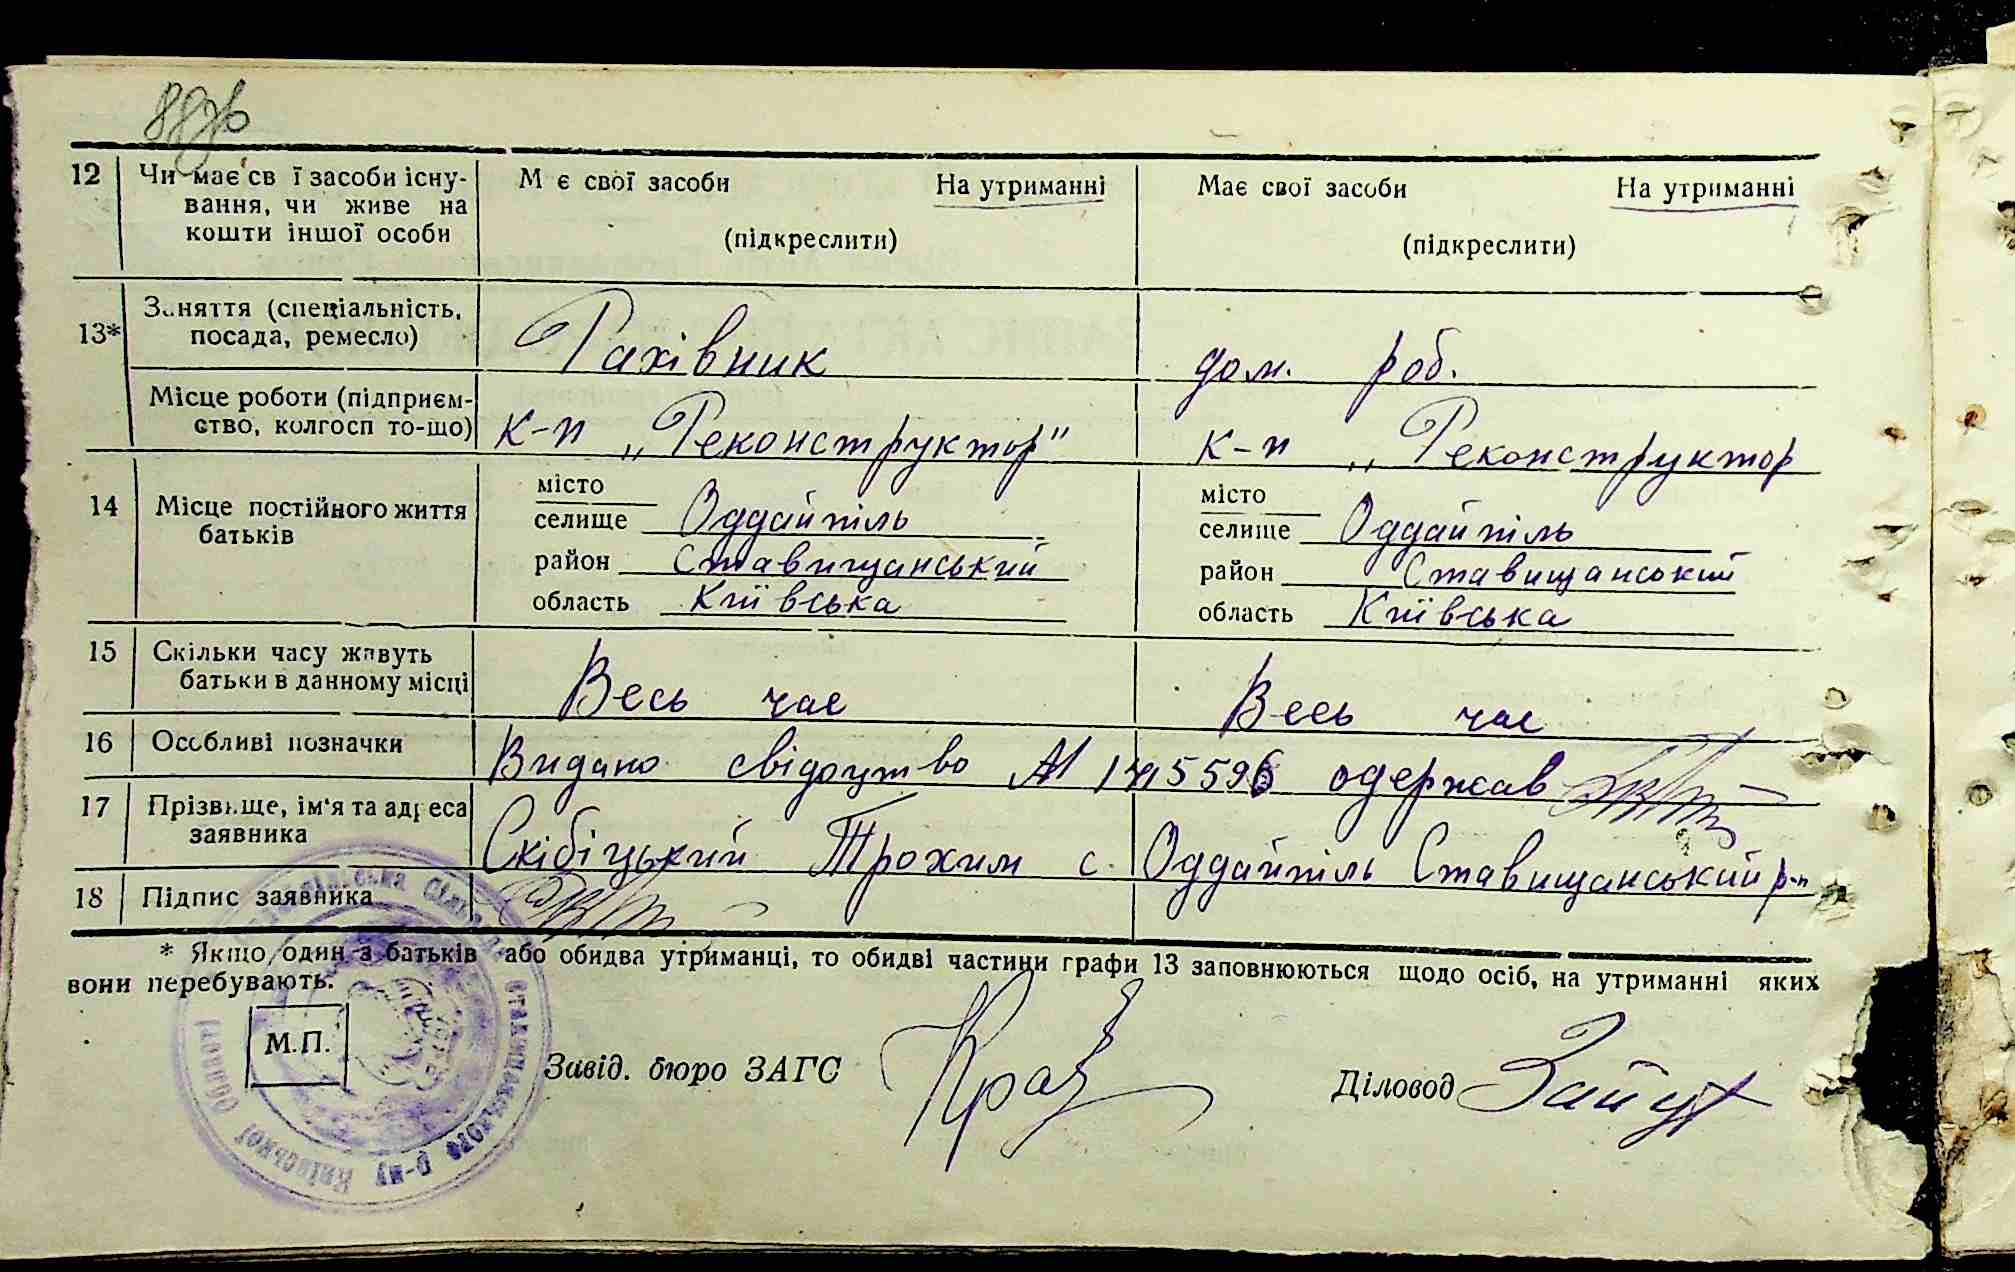 12 Чи має св ї засоби існу-
вання, чи живе на
кошти іншої особи
М є свої засоби На утриманні
(підкреслити)
Має свої засоби На утриманні
(підкреслити)
13* Заняття (спеціальність,
посада, ремесло)
Рахівник
дом. роб.
Місце роботи (підприєм-
ство, колгосп то-що)
к-п „Реконструктор"
к-п „Реконструктор
14 Місце постійного життя
батьків
місто
селище Оддайпіль
район Ставищанський
область Київська
місто
селище Оддайпіль
район Ставищанський
область Київська
15 Скільки часу живуть
батьки в данному місці
Весь час
Весь час
16 Особливі позначки
Видано свідоцтво одержав
17 Прізвище, ім'я та адреса
заявника
Скібіцький Трохим с. Оддайпіль Ставищанський р-н
18 Підпис заявника
* Якщо один з батьків або обидва утриманці, то обидві частини графи 13 заповнюються щодо осіб, на утриманні яких
вони перебувають.
М.П.
Завід. бюро ЗАГС
Діловод